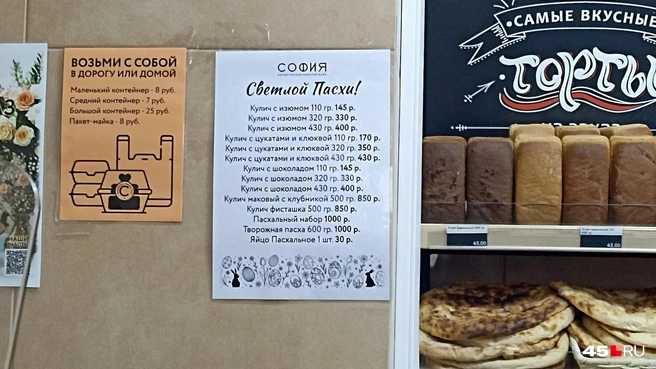 ВОЗЬМИ С СОБОЙ
В ДОРОГУ ИЛИ ДОМОЙ
Маленький контейнер - 8 руб.
Средний контейнер - 7 руб.
Большой контейнер - 25 руб.
Пакет-майка - 8 руб.
СОФИЯ
Светлой Пасхи!
Кулич с изюмом 110 гр. 145 р.
Кулич с изюмом 320 гр. 330 р.
Кулич с изюмом 430 гр. 400 р.
Кулич с цукатами и клюквой 110 гр. 170 р.
Кулич с цукатами и клюквой 320 гр. 350 р.
Кулич с цукатами и клюквой 430 гр. 430 р.
Кулич с шоколадом 110 гр. 145 р.
Кулич с шоколадом 320 гр. 330 р.
Кулич с шоколадом 430 гр. 400 р.
Кулич маковый с клубникой 500 гр. 850 р.
Кулич фисташка 500 гр. 850 р.
Пасхальный набор 1000 р.
Творожная пасха 600 гр. 1000 р.
Яйцо Пасхальное 1 шт. 30 р.
САМЫЕ ВКУСНЫЕ
ТОРТЫ
45,00
45,00
НАШИ
45.RU